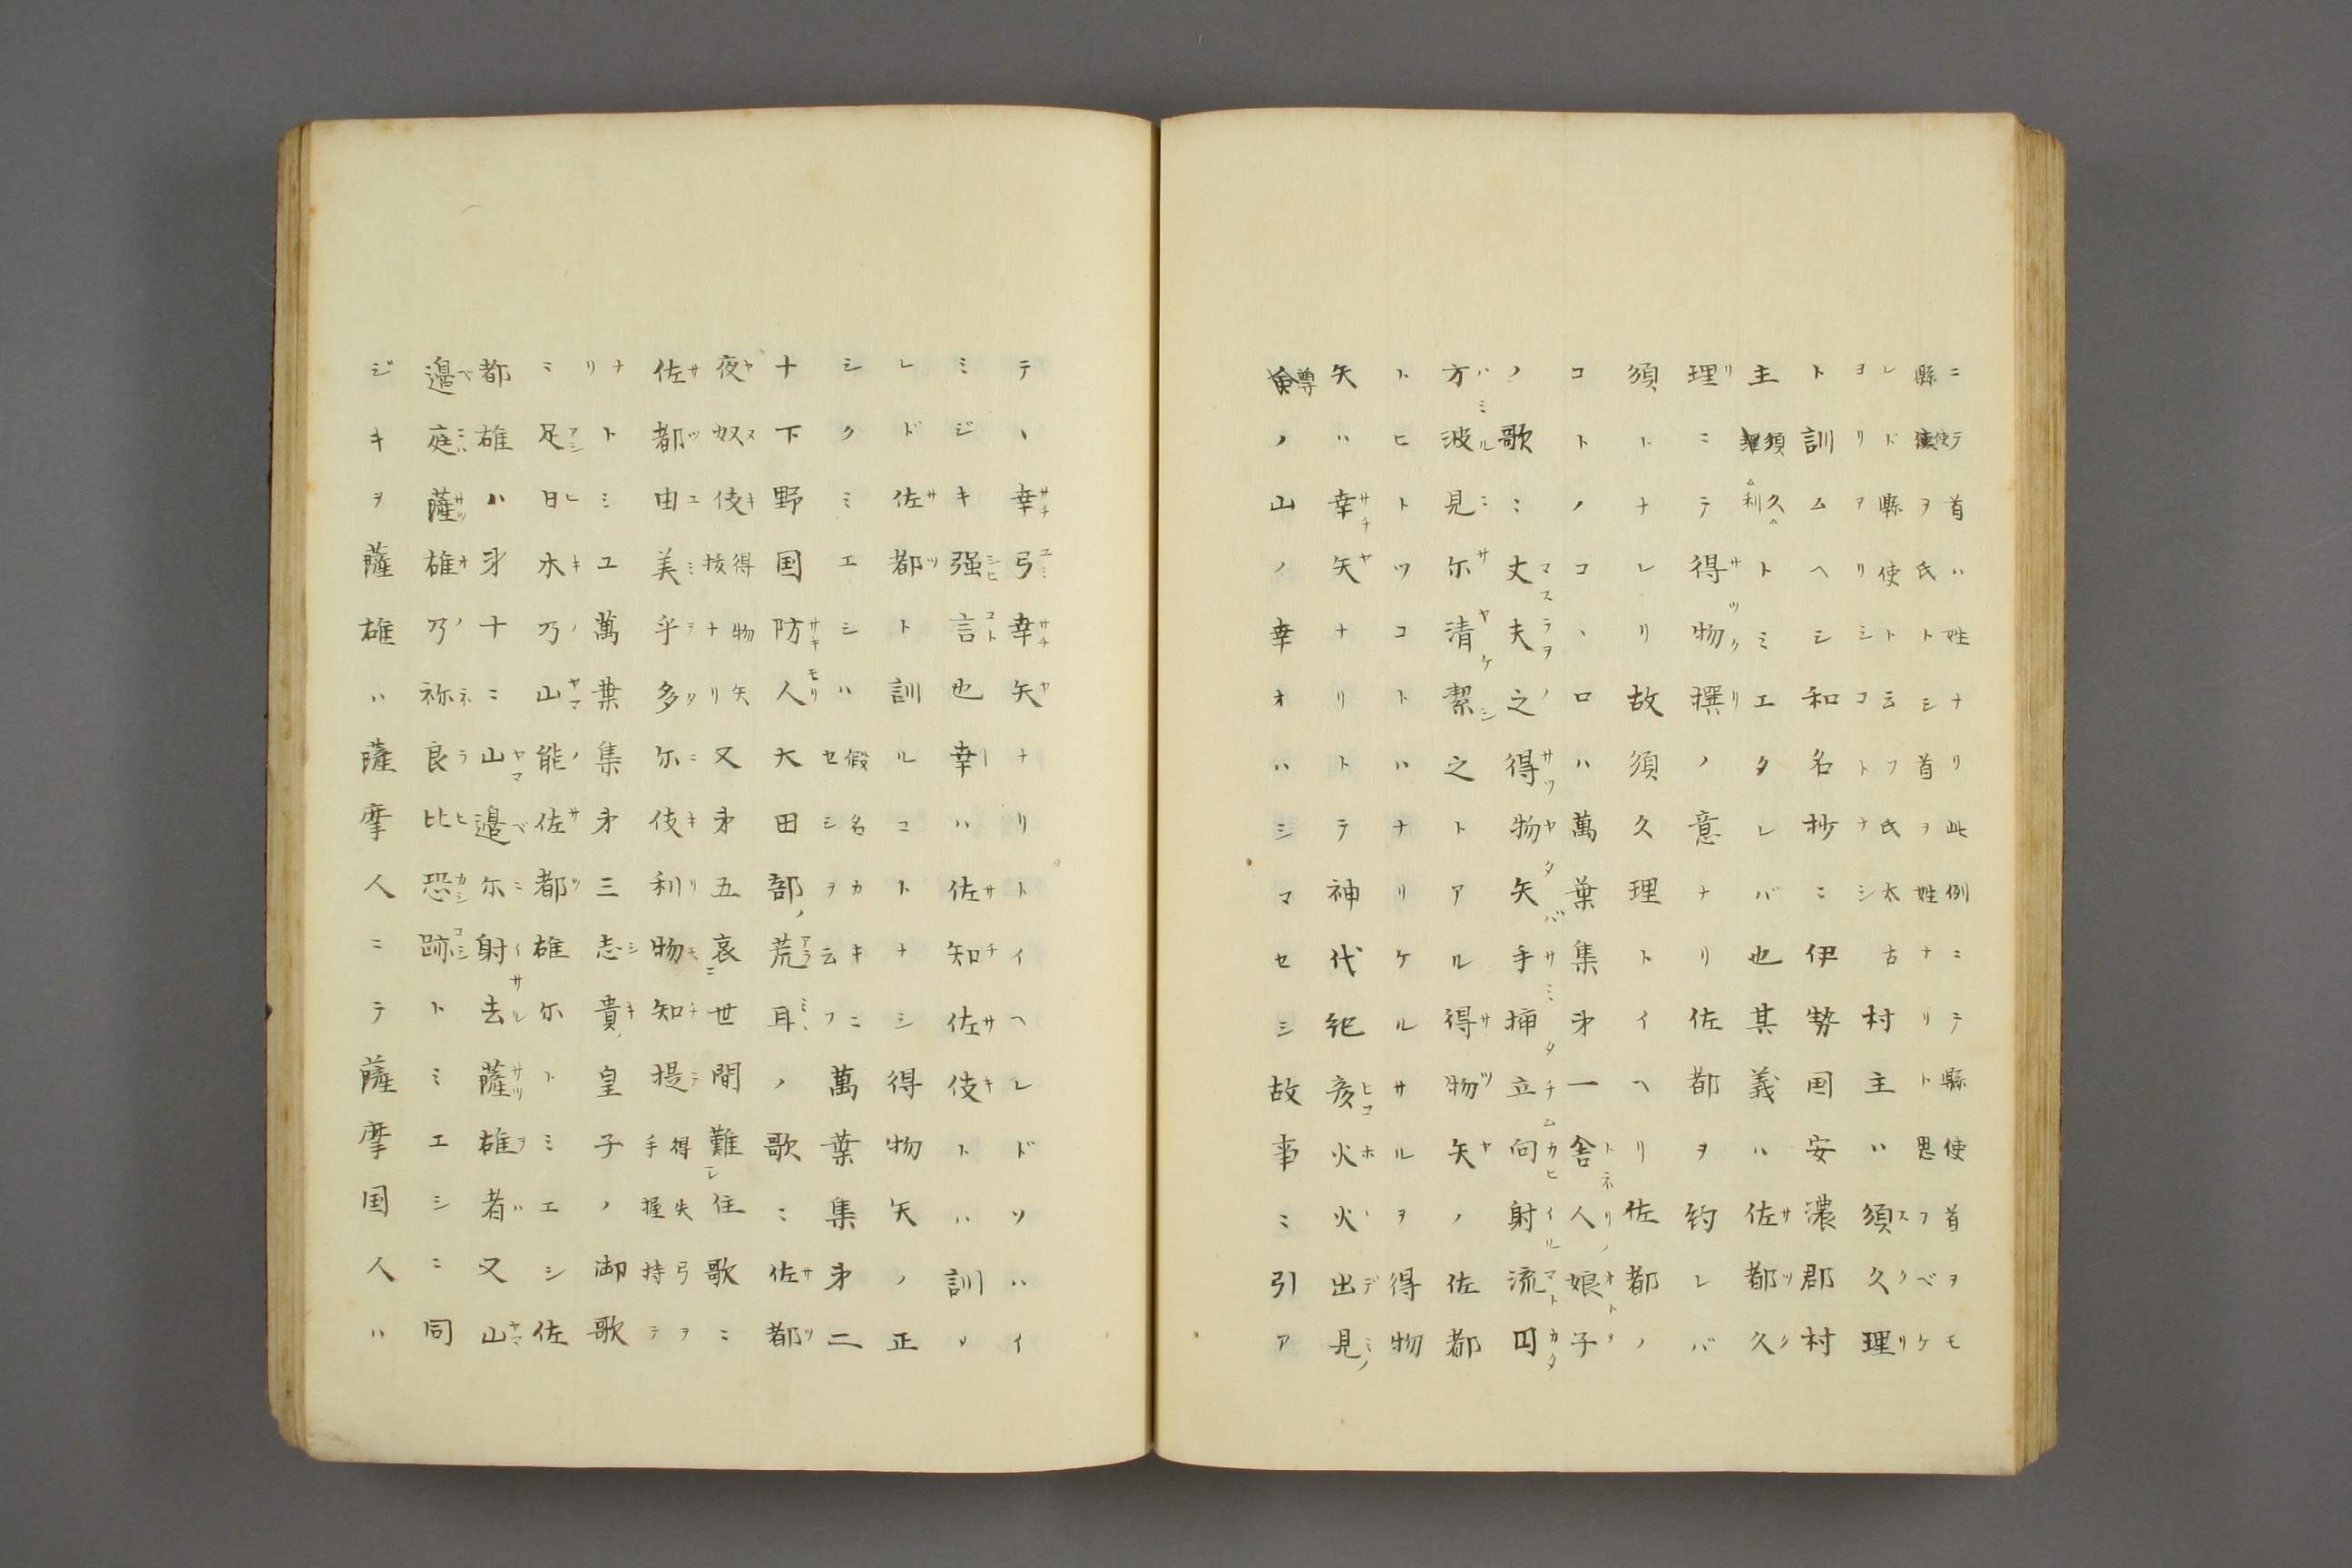 ニテ首ハ姓ナリ此例ニテ縣使首ヲモ
縣使ヲ氏トシ首ヲ姓ナリト思フベケ
レド縣使ト云フ氏太古
ヨリアリシコトナシ
村主ハ須久理
ト訓ムヘシ和名抄ニ伊勢国安濃郡村
主須久利トミエタレバ也其義ハ佐都久
理ニテ得物撰ノ意ナリ佐都ヲ約レバ
須トナレリ故須久理トイヘリ佐都ノ
コトノコヽロハ萬葉集㐧一舎人娘子
ノ歌ニ丈夫之得物矢手挿立向射流円
方波見尓清潔之トアル得物矢ノ佐都
トヒトツコトハナリケルサルヲ得物
矢ハ幸矢ナリトテ神代紀彦火火出見
尊ノ山ノ幸オハシマセシ故事ミ引ア
テヽ幸弓幸矢ナリトイヘレドソハイ
ミジキ強言也幸ハ佐知佐伎トハ訓ツ
レド佐都ト訓ルコトナシ得物矢ノ正
シクミエシハ假名カキニセシヲ云フ萬葉集㐧二
十下野国防人大田部荒耳ノ歌ニ佐都
夜奴伎得物矢抜ナリ又㐧五哀世間難住歌ニ
佐都由美乎多尓伎利物知提得失弓ヲ手握持テ
ナリトミユ萬葉集㐧三志貴皇子ノ御歌
ミ足日木乃山能佐都雄尓トミエシ佐
都雄ハ㐧十ニ山邉尓射去薩雄者又山
邉庭薩雄乃祢良比恐跡トミエシニ同
ジキヲ薩雄ハ薩摩人ニテ薩摩国人ハ